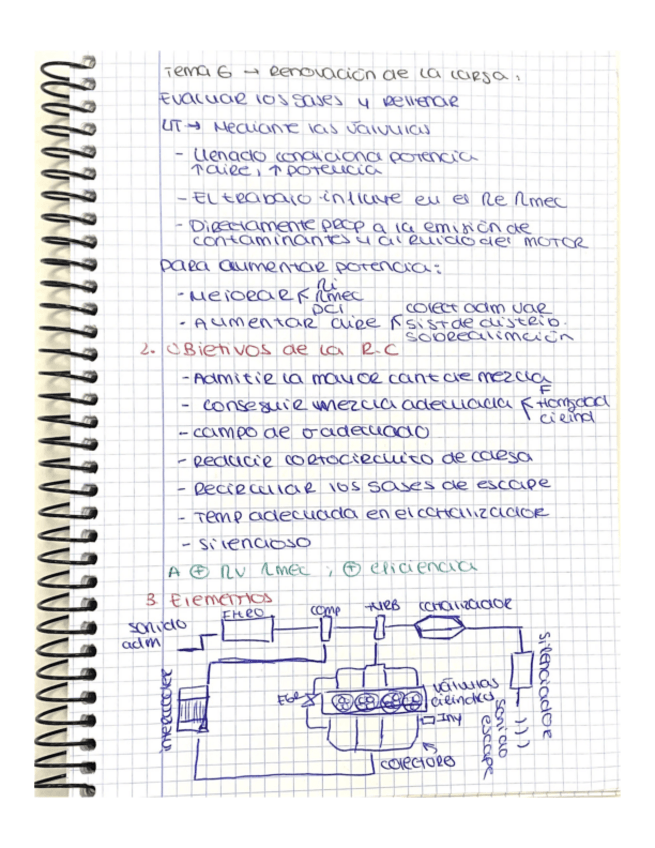 Tema 6 → Renovación de la carga:
Evacuar los gases y rellenar
4T → Mediante las válvulas
- Llenado condiciona potencia
↑ aire, ↑ potencia
- El trabajo influye en el
- Directamente prop a la emisión de
contaminantes y al ruido del MOTOR
Para aumentar potencia:
- Mejorar < ηi
ηmec
PCI
- Aumentar aire < colect adm var
sist de distrib.
sobrealimción
2. Objetivos de la R.C
- Admitir la mayor cant de mezcla
- conseguir mezcla adecuada < F
Homgdad
cilind
- campo de σ adecuado
- Reducir cortocircuito de carga
- Recircular los gases de escape
- Temp adecuada en el catalizador
- Silencioso
A ⊕ ηv ηmec ; ⊕ eficiencia
3 Elementos
sonido
adm
Filtro
comp
turb
catalizador
silenciador
intercooler
EGR
válvulas
cilindros
Iny
sonido
escape
colectores